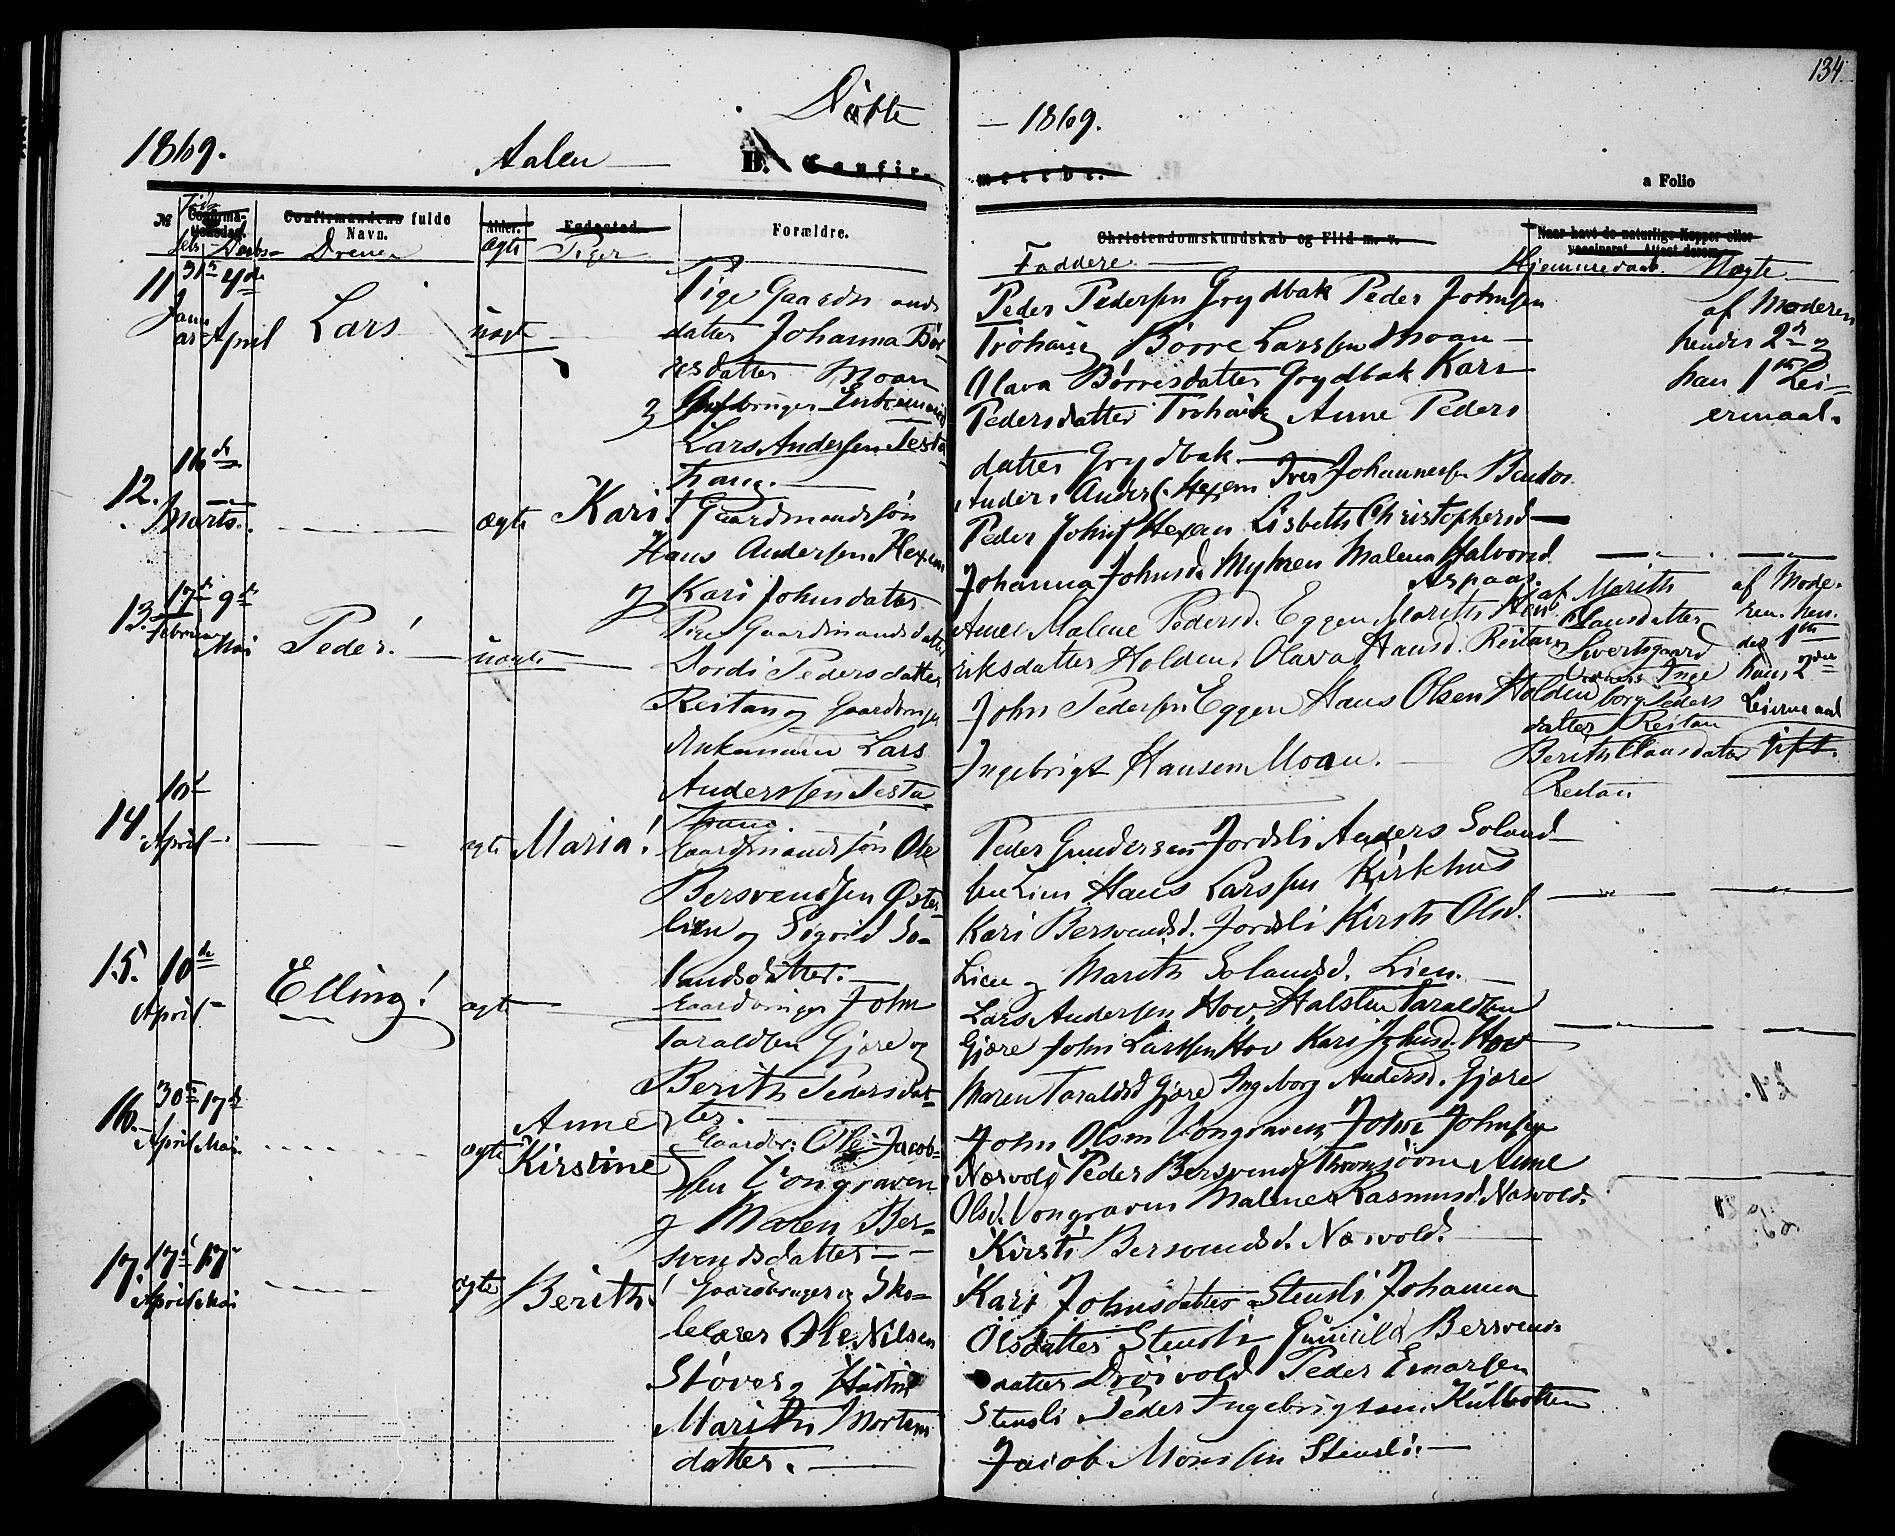 134
Døbte — 1869.
1869. Aalen — B. Confir-
mererede. a Folio
№ Født Confirma-
tionsdag. Confirmandens fulde
Navn. Alder. Fødested. Forældre. Christendomskundskab og Flid m. v. Naar havt de naturlige Kopper eller
vaccineret. Attest derom.
Døbs- Drenge ægte Piger Faddere. Hjemmedøbt. Uægte
11 31 4de
Januar April Lars uægte
Pige Gaardmands
datter Johanna Bør-
resdatter Moan
og Gaardbruger Enkemand
Lars Andersen Testa-
trang.
Peder Pedersen Grydbak Peder Johnsen
Trøhaug Børre Larssen Moan —
Olava Børresdatter Grydbak Kari
Pedersdatter Trøhaug Anne Peders
datter Grydbak.
af Moderen
hendes 2det og
han 1ste Lei-
ermaal.
12. 16de
Marts. ægte Kari!
Gaardmandssøn
Hans Andersen Hexem
og Kari Johnsdatter
Anders Anders. Hexem Iver Johannessen
Peder Johns. Hexem Lisbeth Christophersd.
Johanna Johnsd. Myhren Malena Halvorsd.
Aspaas.
13. 17de 9de
Februar Mai Peder! uægte
Pige Gaardmandsdatter
Dordi Pedersdatter
Reitan og Gaardbruger
Enkemand Lars
Andersen Testa
trang.
Anne Malene Pedersd. Eggen Marith Hen
riksdatter Holden, Olava Hansd. Reitan
John Pedersen Eggen Hans Olsen Holden
Ingebrigt Hansen Moan.
af Marith
Hansdatter
Sivertsgaard
Inge
borg Peders
datter Reitan
Berith Hansdatter
Reitan
af Mode-
ren hen-
des 1ste
hans 2det
Leiermaal
gift.
14. 10de
April — ægte Maria!
Gaardmandssøn Ole
Bersvendsen Øster-
lien og Sigrid Lo-
landsdatter.
Peder Gundersen Jordsli Anders Eoland-
sen Lien Hans Larssen Kirkhus
Kari Bersvendsd. Jordsli Kirsti Olsd.
Lien og Marith Eolandsd. Lien.
15. 10de
April — Elling! ægte
Gaardbruger John
Taraldsen Gjøre og
Berith Pedersdat-
ter
Lars Andersen Hov, Halsten Taraldsen
Gjøre John Larssen Hov Kari Johnsd. Hov
Maren Taraldsd. Gjøre Ingeborg Andersd. Gjøre
16. 30te 17de
April Mai ægte Anne
Kirstine
Gaardbr. Ole Jacob-
sen Vongraven
og Maren Ber-
svendsdatter
John Olsen Vongraven John Johnsen
Næsvold Peder Bersvends. Anne
Olsd. Vongraven Malene Rasmusd. Næsvold.
Kirsti Bersvendsd. Næsvold.
17. 17de 17de
April Mai ægte Berith!
Gaardbruger og Sko-
lelærer Ole Nilsen
Støver og Hustru
Marith Mortens
datter.
Kari Johnsdatter Stensli Johanna
Olsdatter Stensli Gunild Bersvends
datter Drøivold Peder Einarsen
Stensli Peder Ingebrigtsen Kulbotten
Jacob Monssen Stensli.